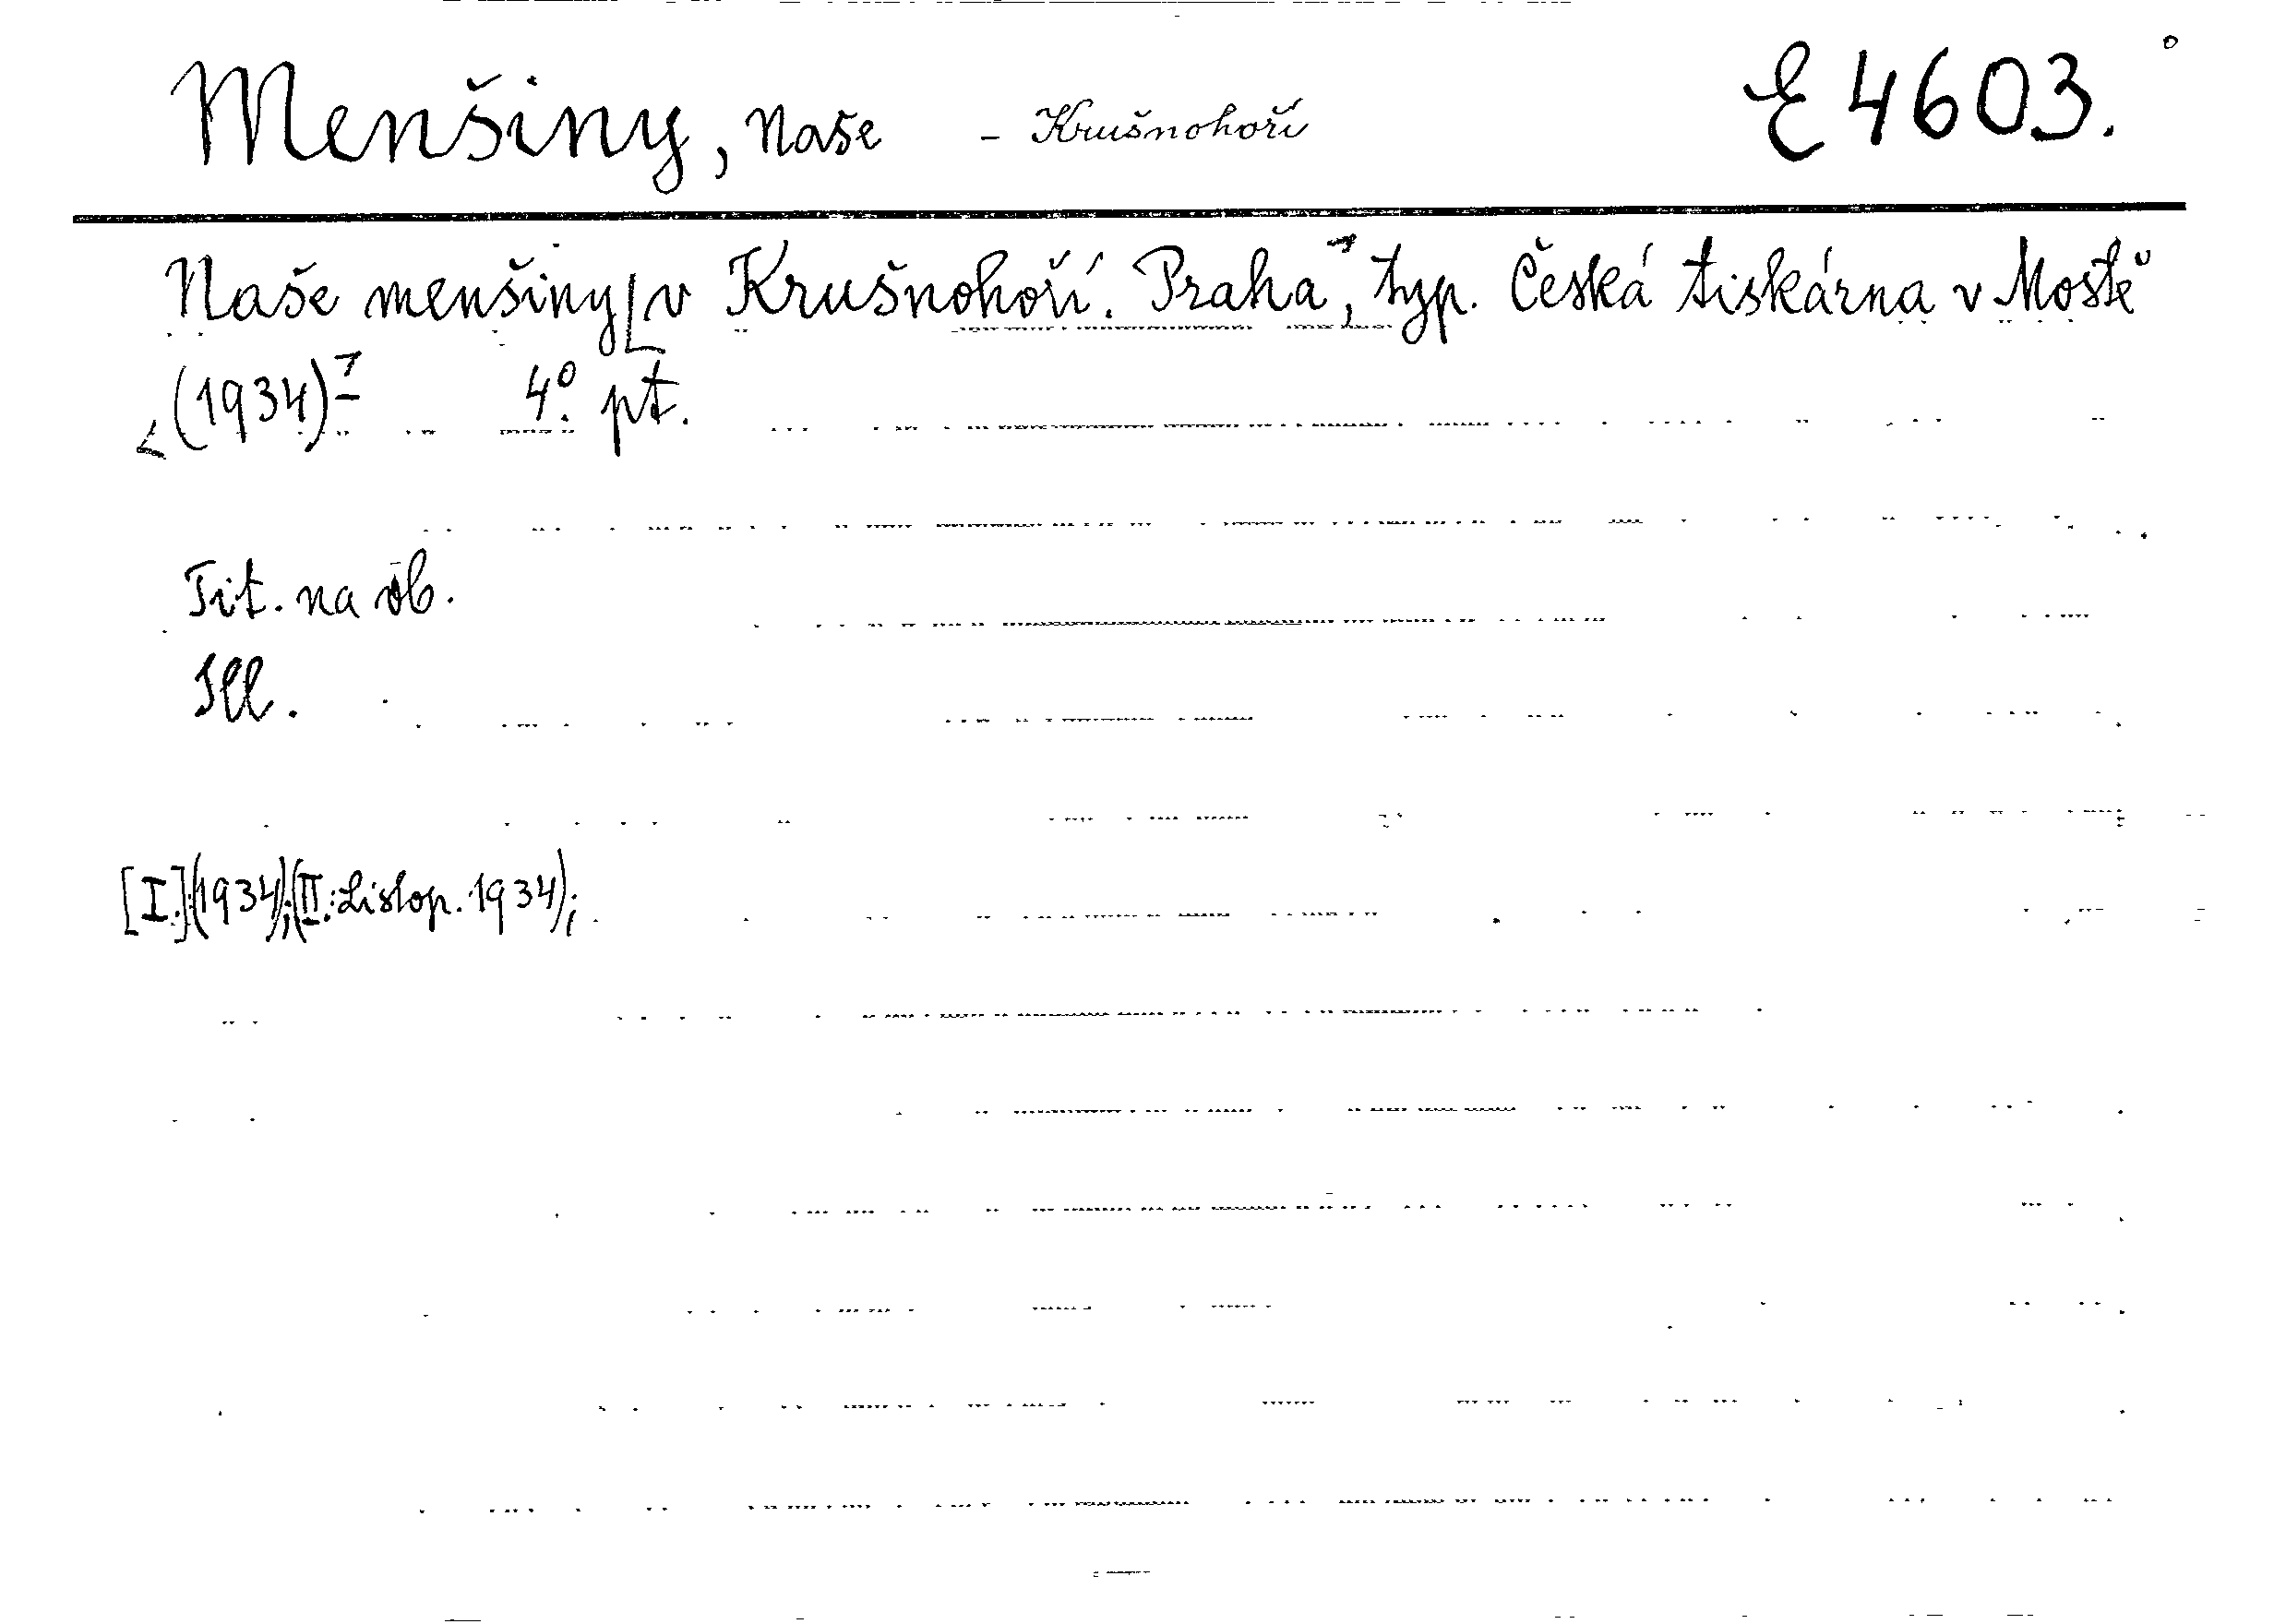 Menšiny, Naše – Krušnohoří E 4603.
Naše menšiny v Krušnohoří. Praha, typ. Česká tiskárna v Mostě
(1934)– 4°. pt.
Tit. na ob.
Ill.
[I.]:(1934);(II.: Listop. 1934);